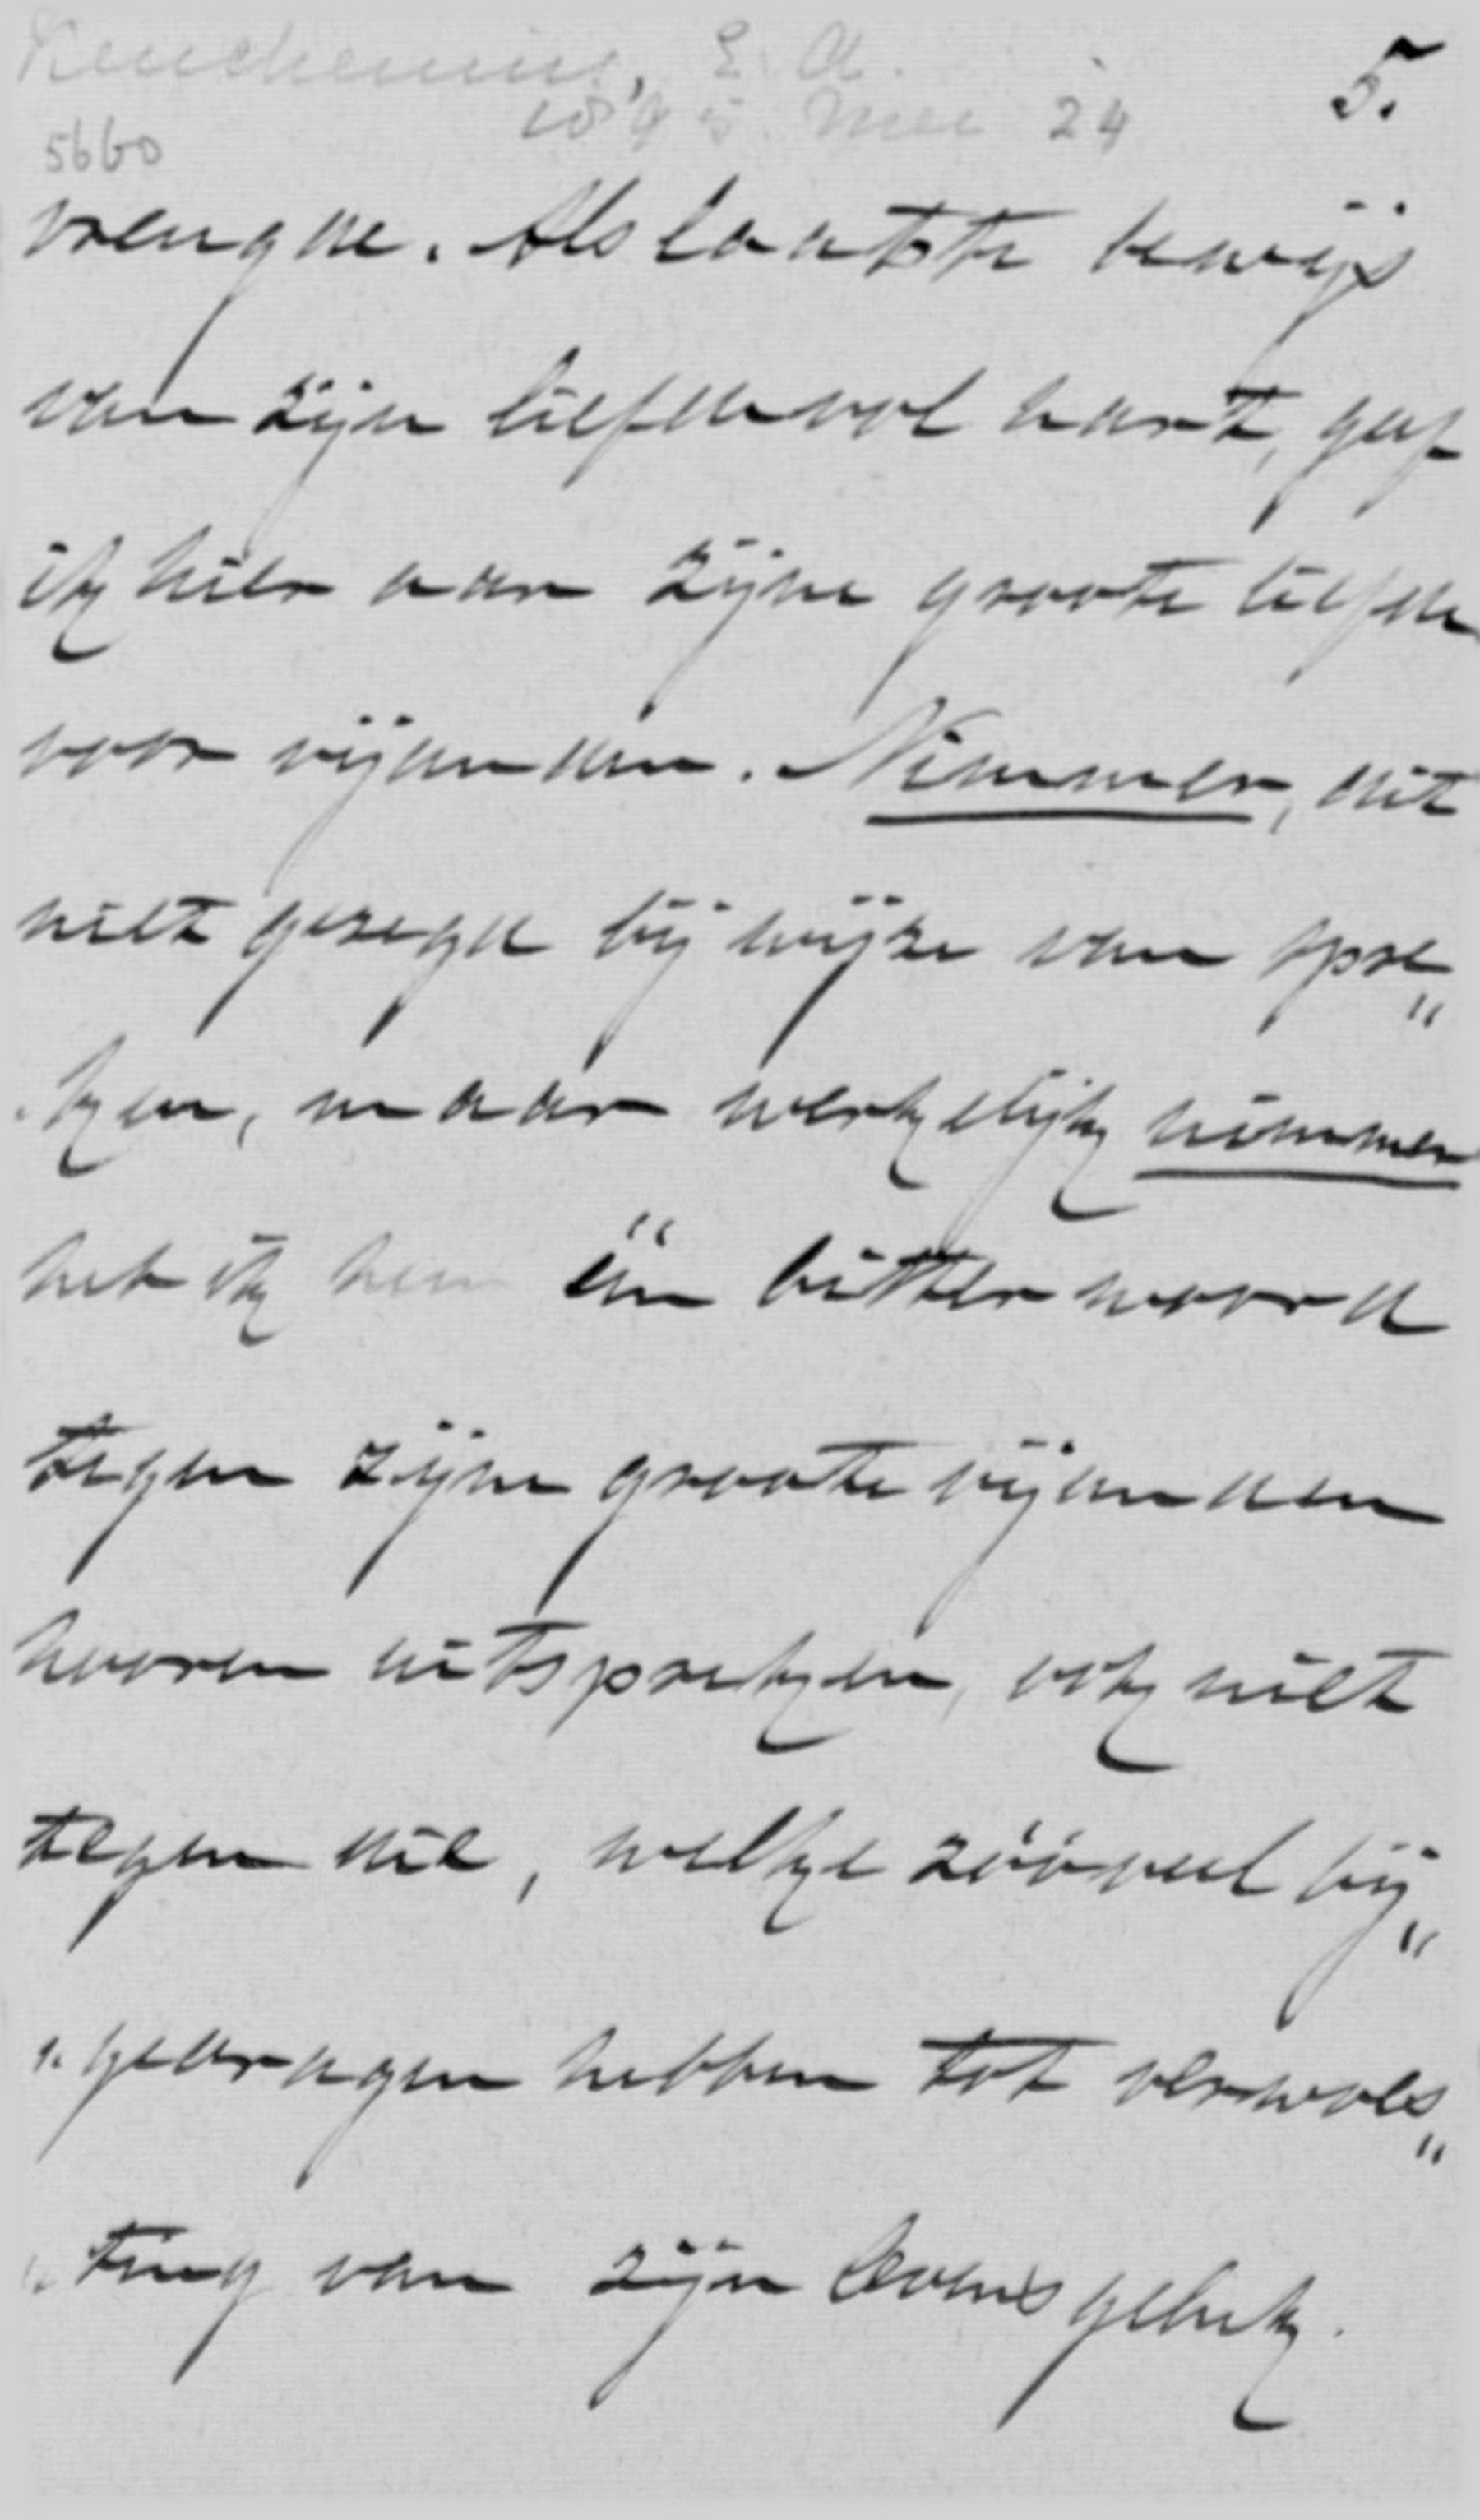 Keuchenius, L. A. 5.
1895 Mei 24
5660
vreugde. Als laatste bewijs
van zijn liefdevol hart, gaf
ik hier aan zijne groote liefde
voor vijanden. Nimmer, dit
niet gezegd bij wijze van spre„
„ken, maar werkelijk nimmer
heb ik hem één bitter woord
tegen zijne groote vijanden
hooren uitspreken, ook niet
tegen die, welke zóóveel bij„
„gedragen hebben tot verwoes„
„ting van zijn levensgeluk.